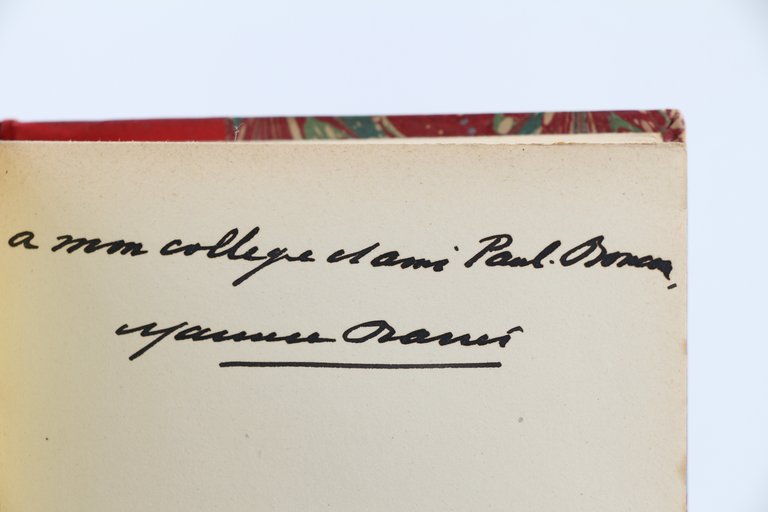 a mon collegue et ami Paul. Boncour,
Maurice Barrès